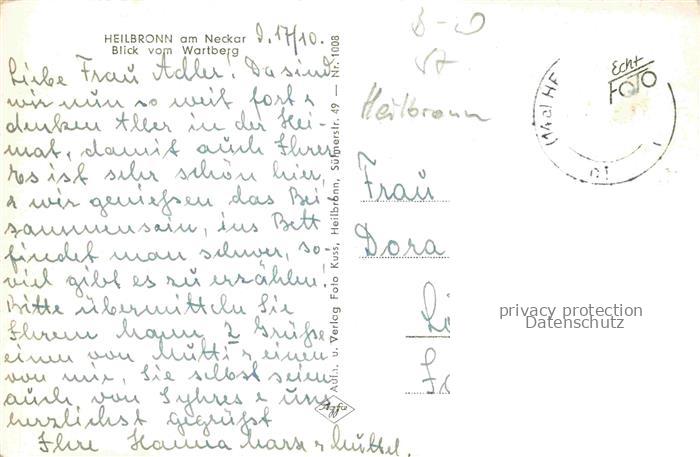 HEILBRONN am Neckar
Blick vom Wartberg
d. 17/10.
Liebe Frau Adler! Da sind
wir nun so weit fort &
denken Aller in der Hei-
mat, damit auch Ihrer
Es ist sehr schön hier,
& wir genießen das Bei-
sammensein, ins Bett
findet man schwer, so-
viel gibt es zu erzählen.
Bitte übermitteln Sie
Ihrem Mann 2 Grüße
einen von Mutti & einen
von mir, Sie selbst seien
auch von & uns
herzlichst gegrüßt
Ihre Hanna &
Aufn. u. Verlag Foto Kuss, Heilbronn, Sülmerstr. 49 — Nr. 1008
Agfa
Heilbronn
Echt
FOTO
(14a) HE
Frau
Dora
privacy protection
Datenschutz